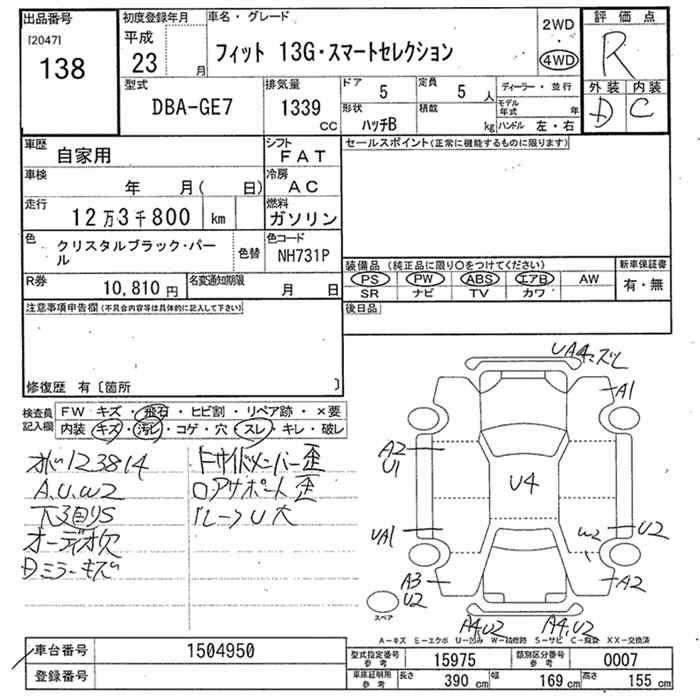 出品番号
[2047]
138
初度登録年月
平成
23 月
車名・グレード
フィット 13G・スマートセレクション
2WD
・
4WD
評価点
R
外装 内装
D C
型式
DBA-GE7
排気量
1339
CC
ドア 5
定員 5 人
ディーラー・並行
形状
ハッチB
積載
kg
モデル
年式 年
ハンドル 左・右
車歴
自家用
シフト
FAT
セールスポイント(正常に機能するものに限ります)
車検
年 月( 日)
冷房
AC
走行
12万3千800 km
燃料
ガソリン
色
クリスタルブラック・パー
ル
色替
色コード
NH731P
装備品 (純正品に限り〇をつけてください)
新車保証書
PS PW ABS エアB AW
SR ナビ TV カワ
有・無
R券
10,810 円
名変通知期限
月 日
後日品
注意事項申告欄(不具合内容等は具体的に記入して下さい)
修復歴 有〔箇所 〕
検査員
記入欄
FW キズ・飛石・ヒビ割・リペア跡・×要
内装・キズ・汚レ・コゲ・穴・スレ・キレ・破レ
123814
A.U.W2
オーディオ欠
Dミラーキズ
サイドメンバー歪
ロアサポート歪
UA4
A1
A2
U1
U4
UA1
W2
U2
A3
U2
A2
スペア
A4.U2
A4.U2
A-キズ E-エクボ U-凹み W-補修跡 S-サビ C-腐食 XX-交換済
車台番号
1504950
登録番号
型式指定番号
参考
15975
類別区分番号
参考
0007
車庫証明用
参考
長さ 390 cm
幅 169 cm
高さ 155 cm